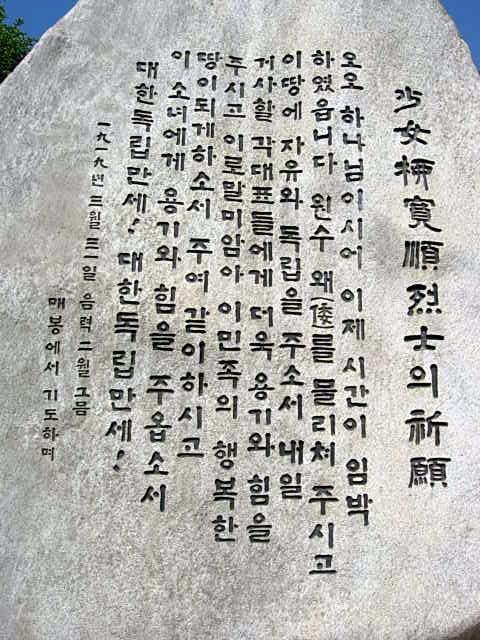 少女柳寬順烈士의 祈願
오오 하나님이시여 이제 시간이 임박
하였읍니다 원수 왜(倭)를 물리쳐 주시고
이땅에 자유와 독립을 주소서 내일
거사할 각대표들에게 더욱 용기와 힘을
주시고 이로말미암아 이민족의 행복한
땅이되게하소서 주여 같이하시고
이 소녀에게 용기와 힘을 주옵소서
대한독립만세! 대한독립만세!
一九一九년 三월 三一일 음력 二월 그믐
매봉에서 기도하며